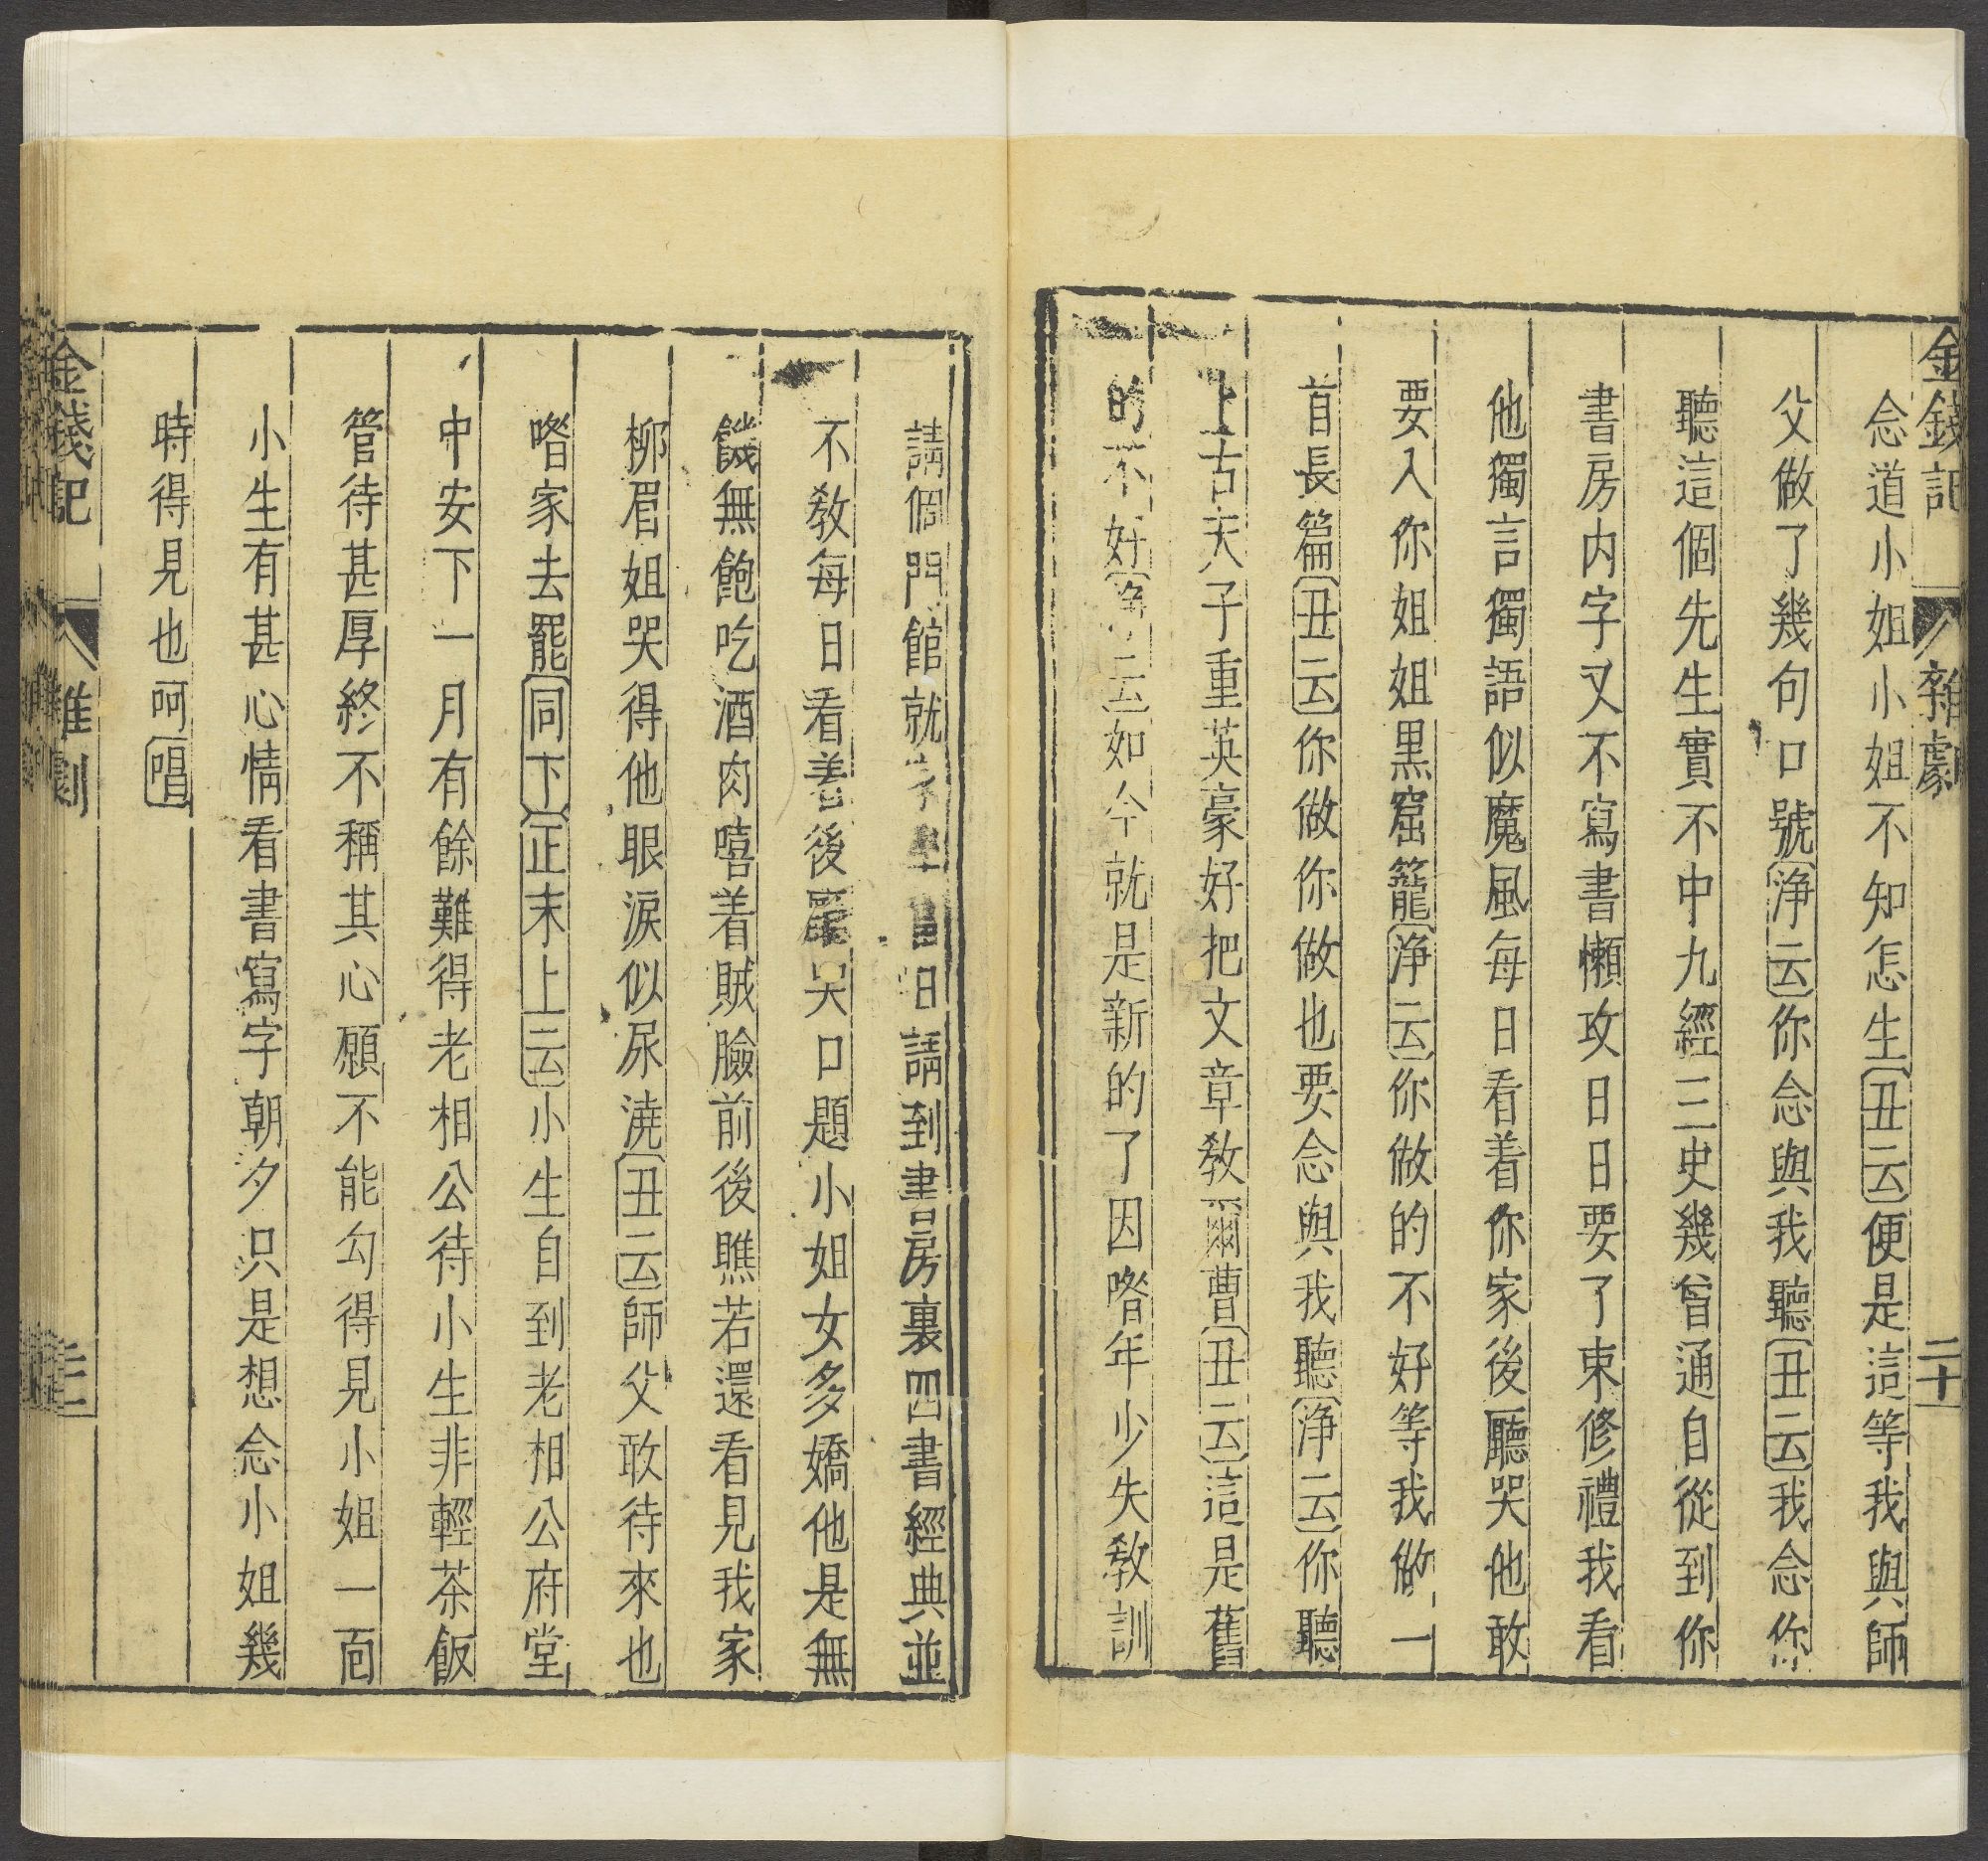 金錢記 雜劇 二十
念道小姐小姐不知怎生丑云便是這等我與師
父做了幾句口號淨云你念與我聽丑云我念你
聽這個先生實不中九經三史幾曾通自從到你
書房内字又不寫書懶攻日日要了束修禮我看
他獨言獨語似魔風每日看着你家後廳哭他敢
要入你姐姐黑窟籠淨云你做的不好等我做一
首長篇丑云你做你做也要念與我聽淨云你聽
上古天子重英豪好把文章教爾曹丑云這是舊
的不好淨云如今就是新的了因喒年少失教訓
請個門館就 日請到書房裏四書經典並
不教每日看着後 哭口題小姐女多嬌他是無
饑無飽吃酒肉嘻着賊臉前後瞧若還看見我家
柳眉姐哭得他眼淚似尿澆丑云師父敢待來也
喒家去罷同下正末上云小生自到老相公府堂
中安下一月有餘難得老相公待小生非輕茶飯
管待甚厚終不稱其心願不能勾得見小姐一面
小生有甚心情看書寫字朝夕只是想念小姐幾
時得見也呵唱
金錢記 雜劇